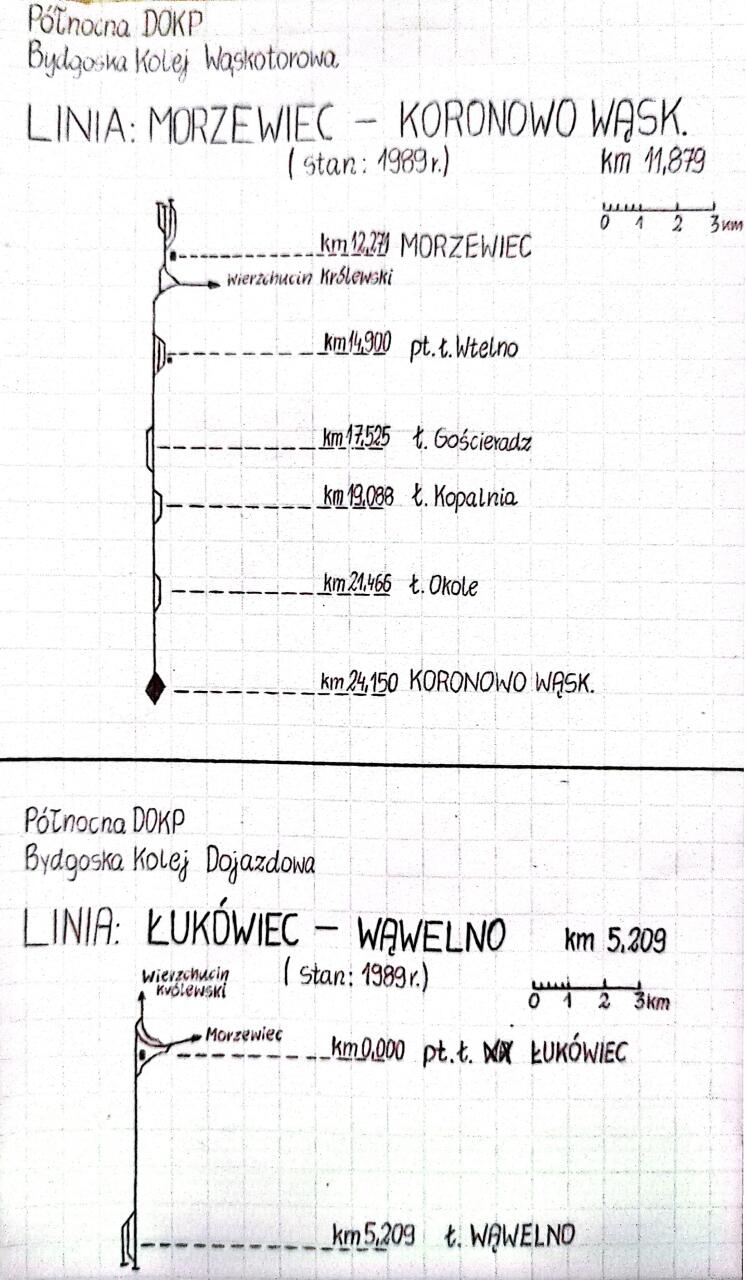 Północna DOKP
Bydgoska Kolej Wąskotorowa
LINIA: MORZEWIEC – KORONOWO WĄSK.
(stan: 1989r.) km 11,879
0 1 2 3km
km 12,271 MORZEWIEC
Wierzchucin Królewski
km 14,900 pt.ł. Wtelno
km 17,525 ł. Gościeradz
km 19,088 ł. Kopalnia
km 21,466 ł. Okole
km 24,150 KORONOWO WĄSK.
Północna DOKP
Bydgoska Kolej Dojazdowa
LINIA: ŁUKÓWIEC – WĄWELNO km 5,209
(stan: 1989r.)
Wierzchucin
Królewski
0 1 2 3km
Morzewiec
km 0,000 pt.ł. ŁUKÓWIEC
km 5,209 ł. WĄWELNO